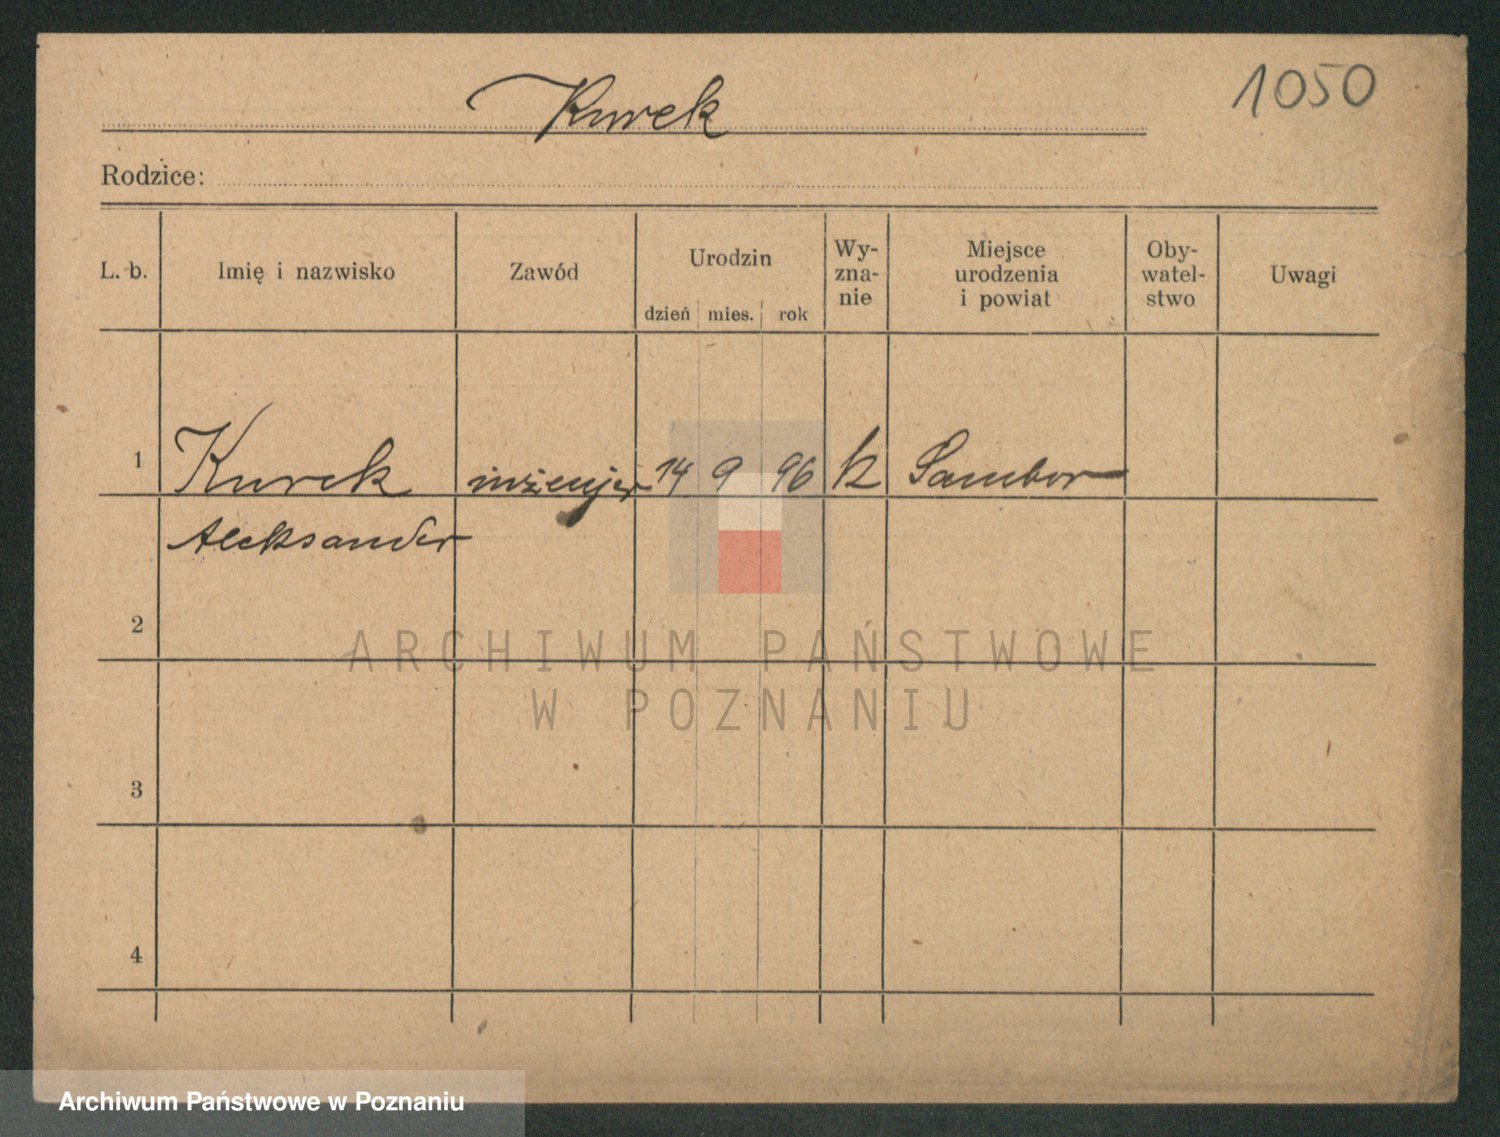 Kurek
1050
Rodzice:
L. b.
Imię i nazwisko
Zawód
Urodzin
dzień mies. rok
Wy-
zna-
nie
Miejsce
urodzenia
i powiat
Oby-
watel-
stwo
Uwagi
1 Kurek inżenjer 14 9 96 k Sambor
Aleksander
2
3
4
ARCHIWUM PAŃSTWOWE
W POZNANIU
Archiwum Państwowe w Poznaniu